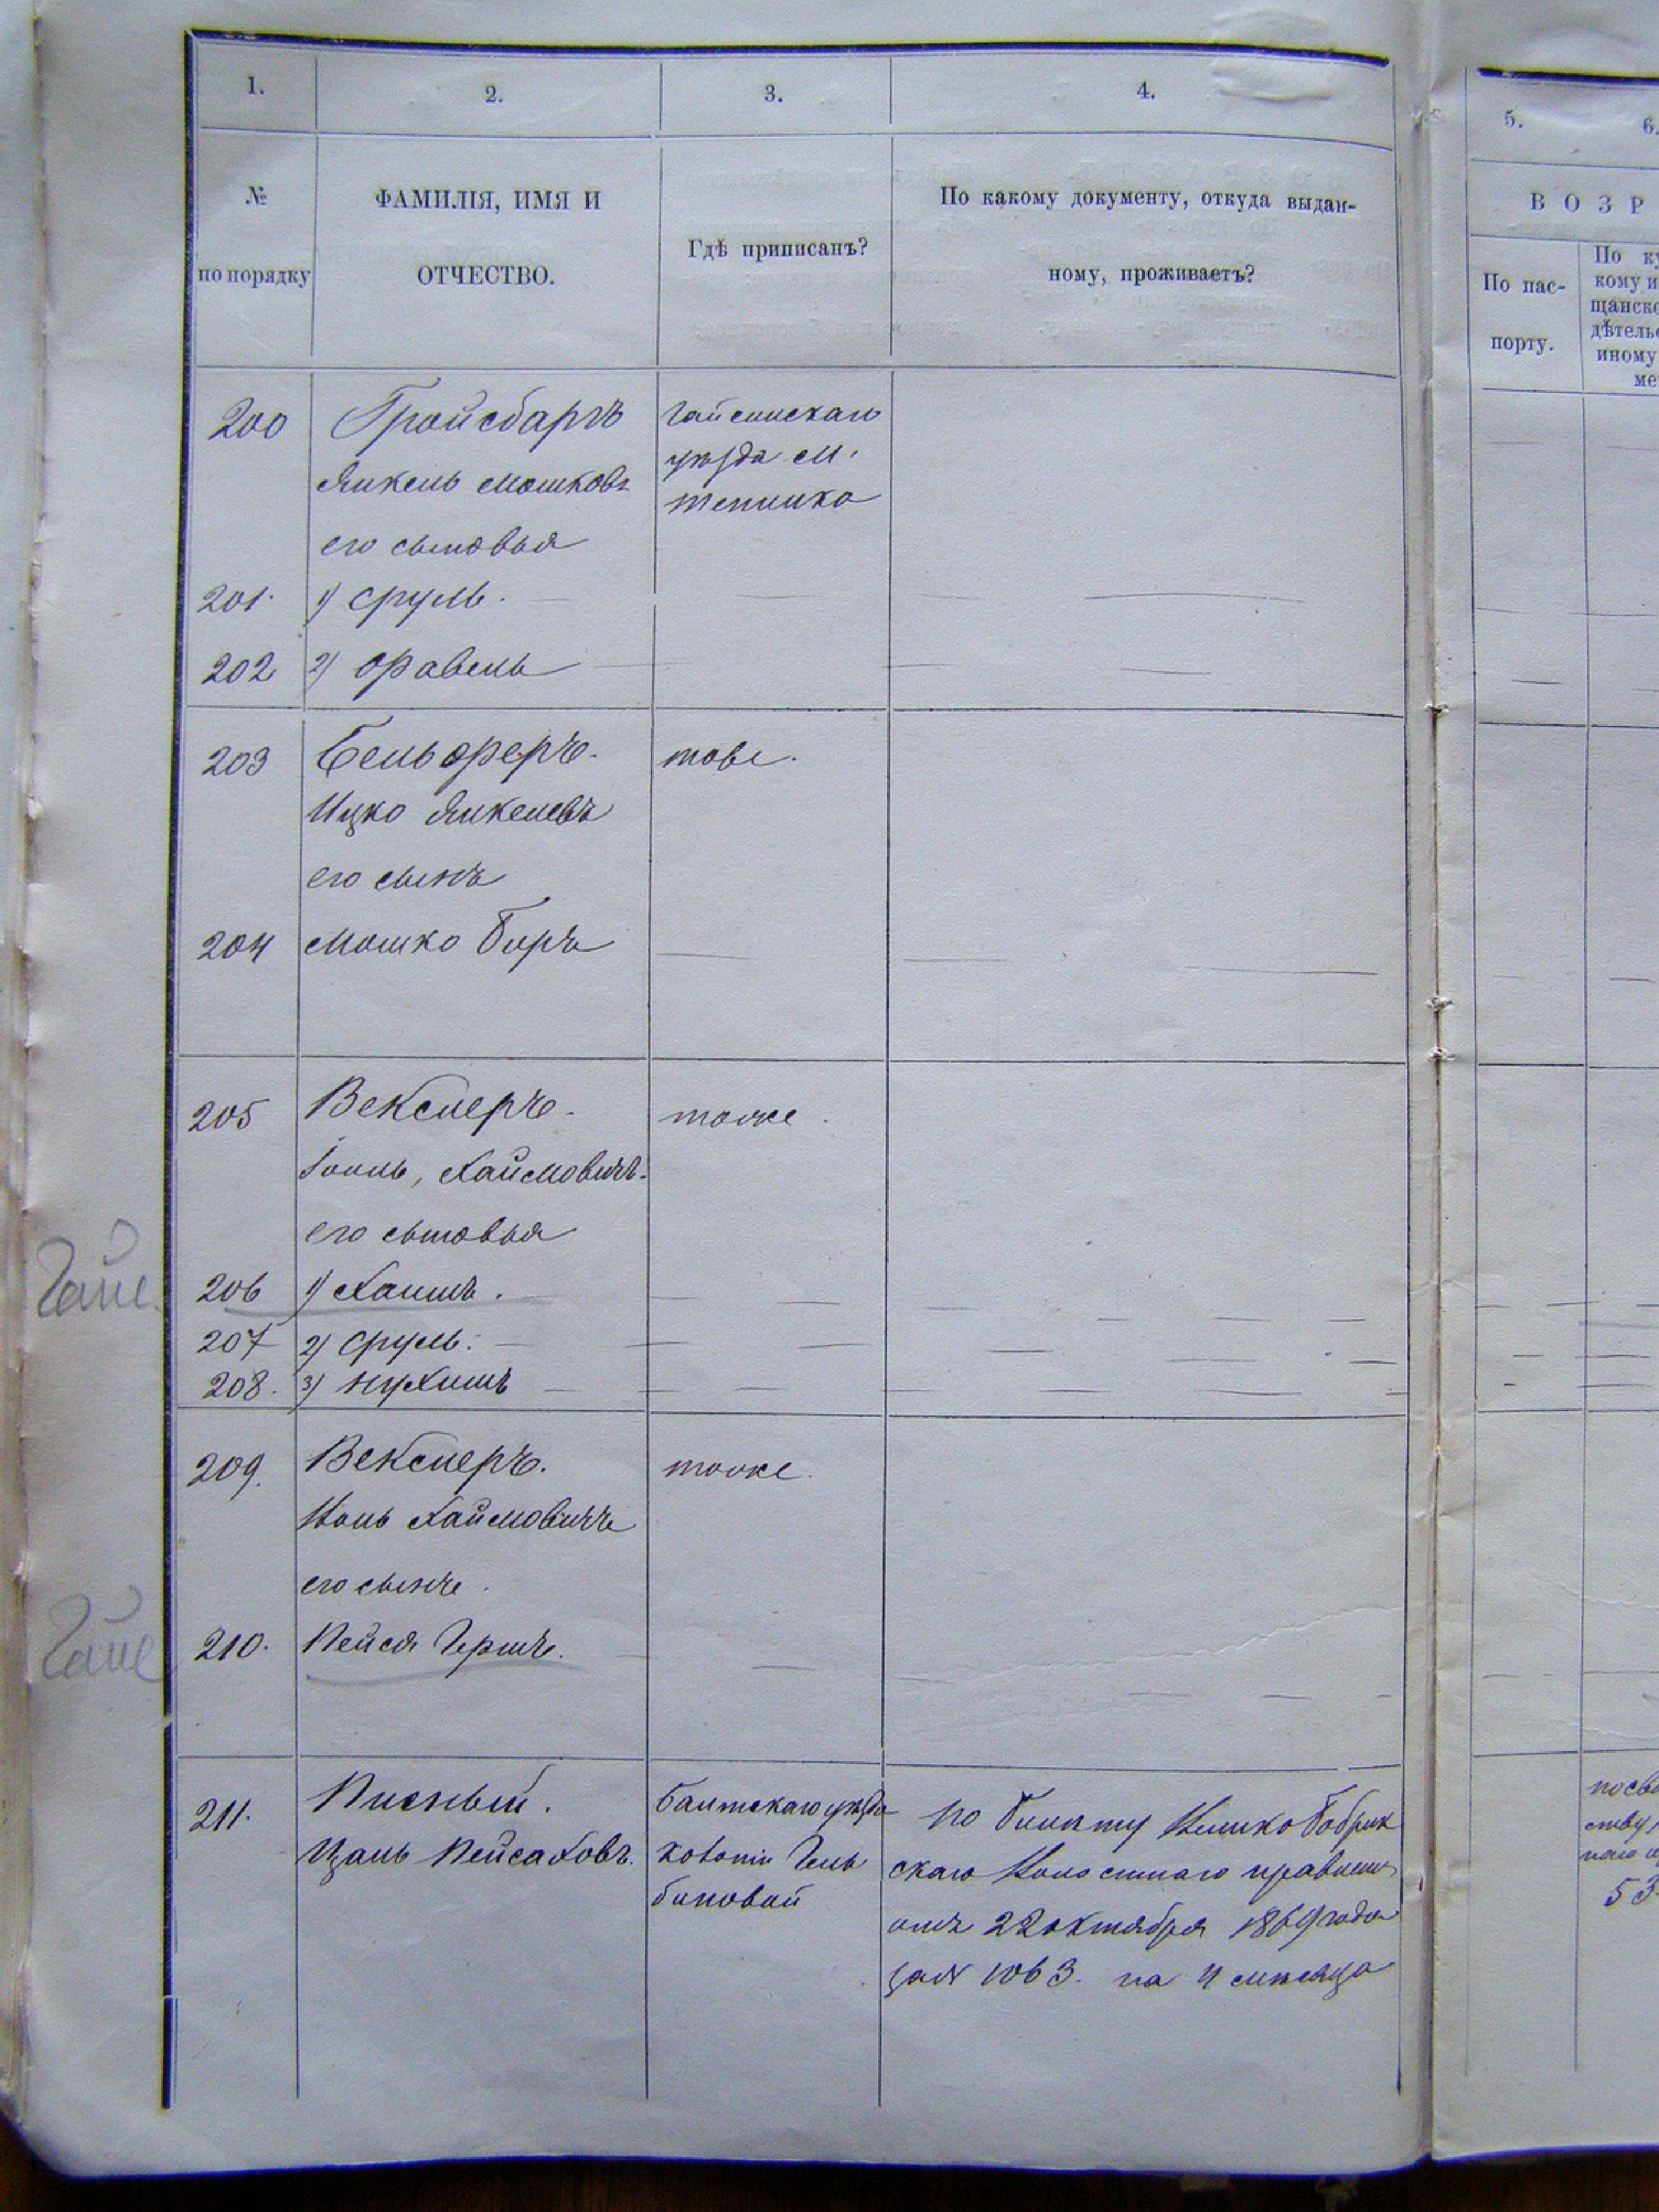 1.
2.
3.
4.
5.
6.
№
по порядку
ФАМИЛІЯ, ИМЯ И
ОТЧЕСТВО.
Гдѣ приписанъ?
По какому документу, откуда выдан-
ному, проживаетъ?
В О З Р
По пас-
порту.
По ку
кому и
щанско
дѣтельс
иному
мен
200
Гройсбаргъ
Янкель Мошковъ
его сыновья
Гайсинскаго
уѣзда м.
Теплика
201.
1) Сруль.
202
2) Фавель
203
Бельферъ.
Ицко Янкелевъ
его сынъ
тоже.
204
Мошко Беръ
205
Векслеръ.
Іоиль, Хаймовичъ.
его сыновья
тоже.
Гайс.
206
1) Хаимъ.
207
2) Сруль.
208.
3) Нухимъ
209.
Векслеръ.
Хаймовичъ
его сынъ.
тоже.
Гайс
210.
Пейся Гершъ.
211.
Писный.
Пейсаховъ.
Балтскаго уѣзда
колоніи Гель
биновой
По билету
скаго правлен
отъ 22 октября 1869 года
за N 1063. на 4 мѣсяца
по сви
ству
53